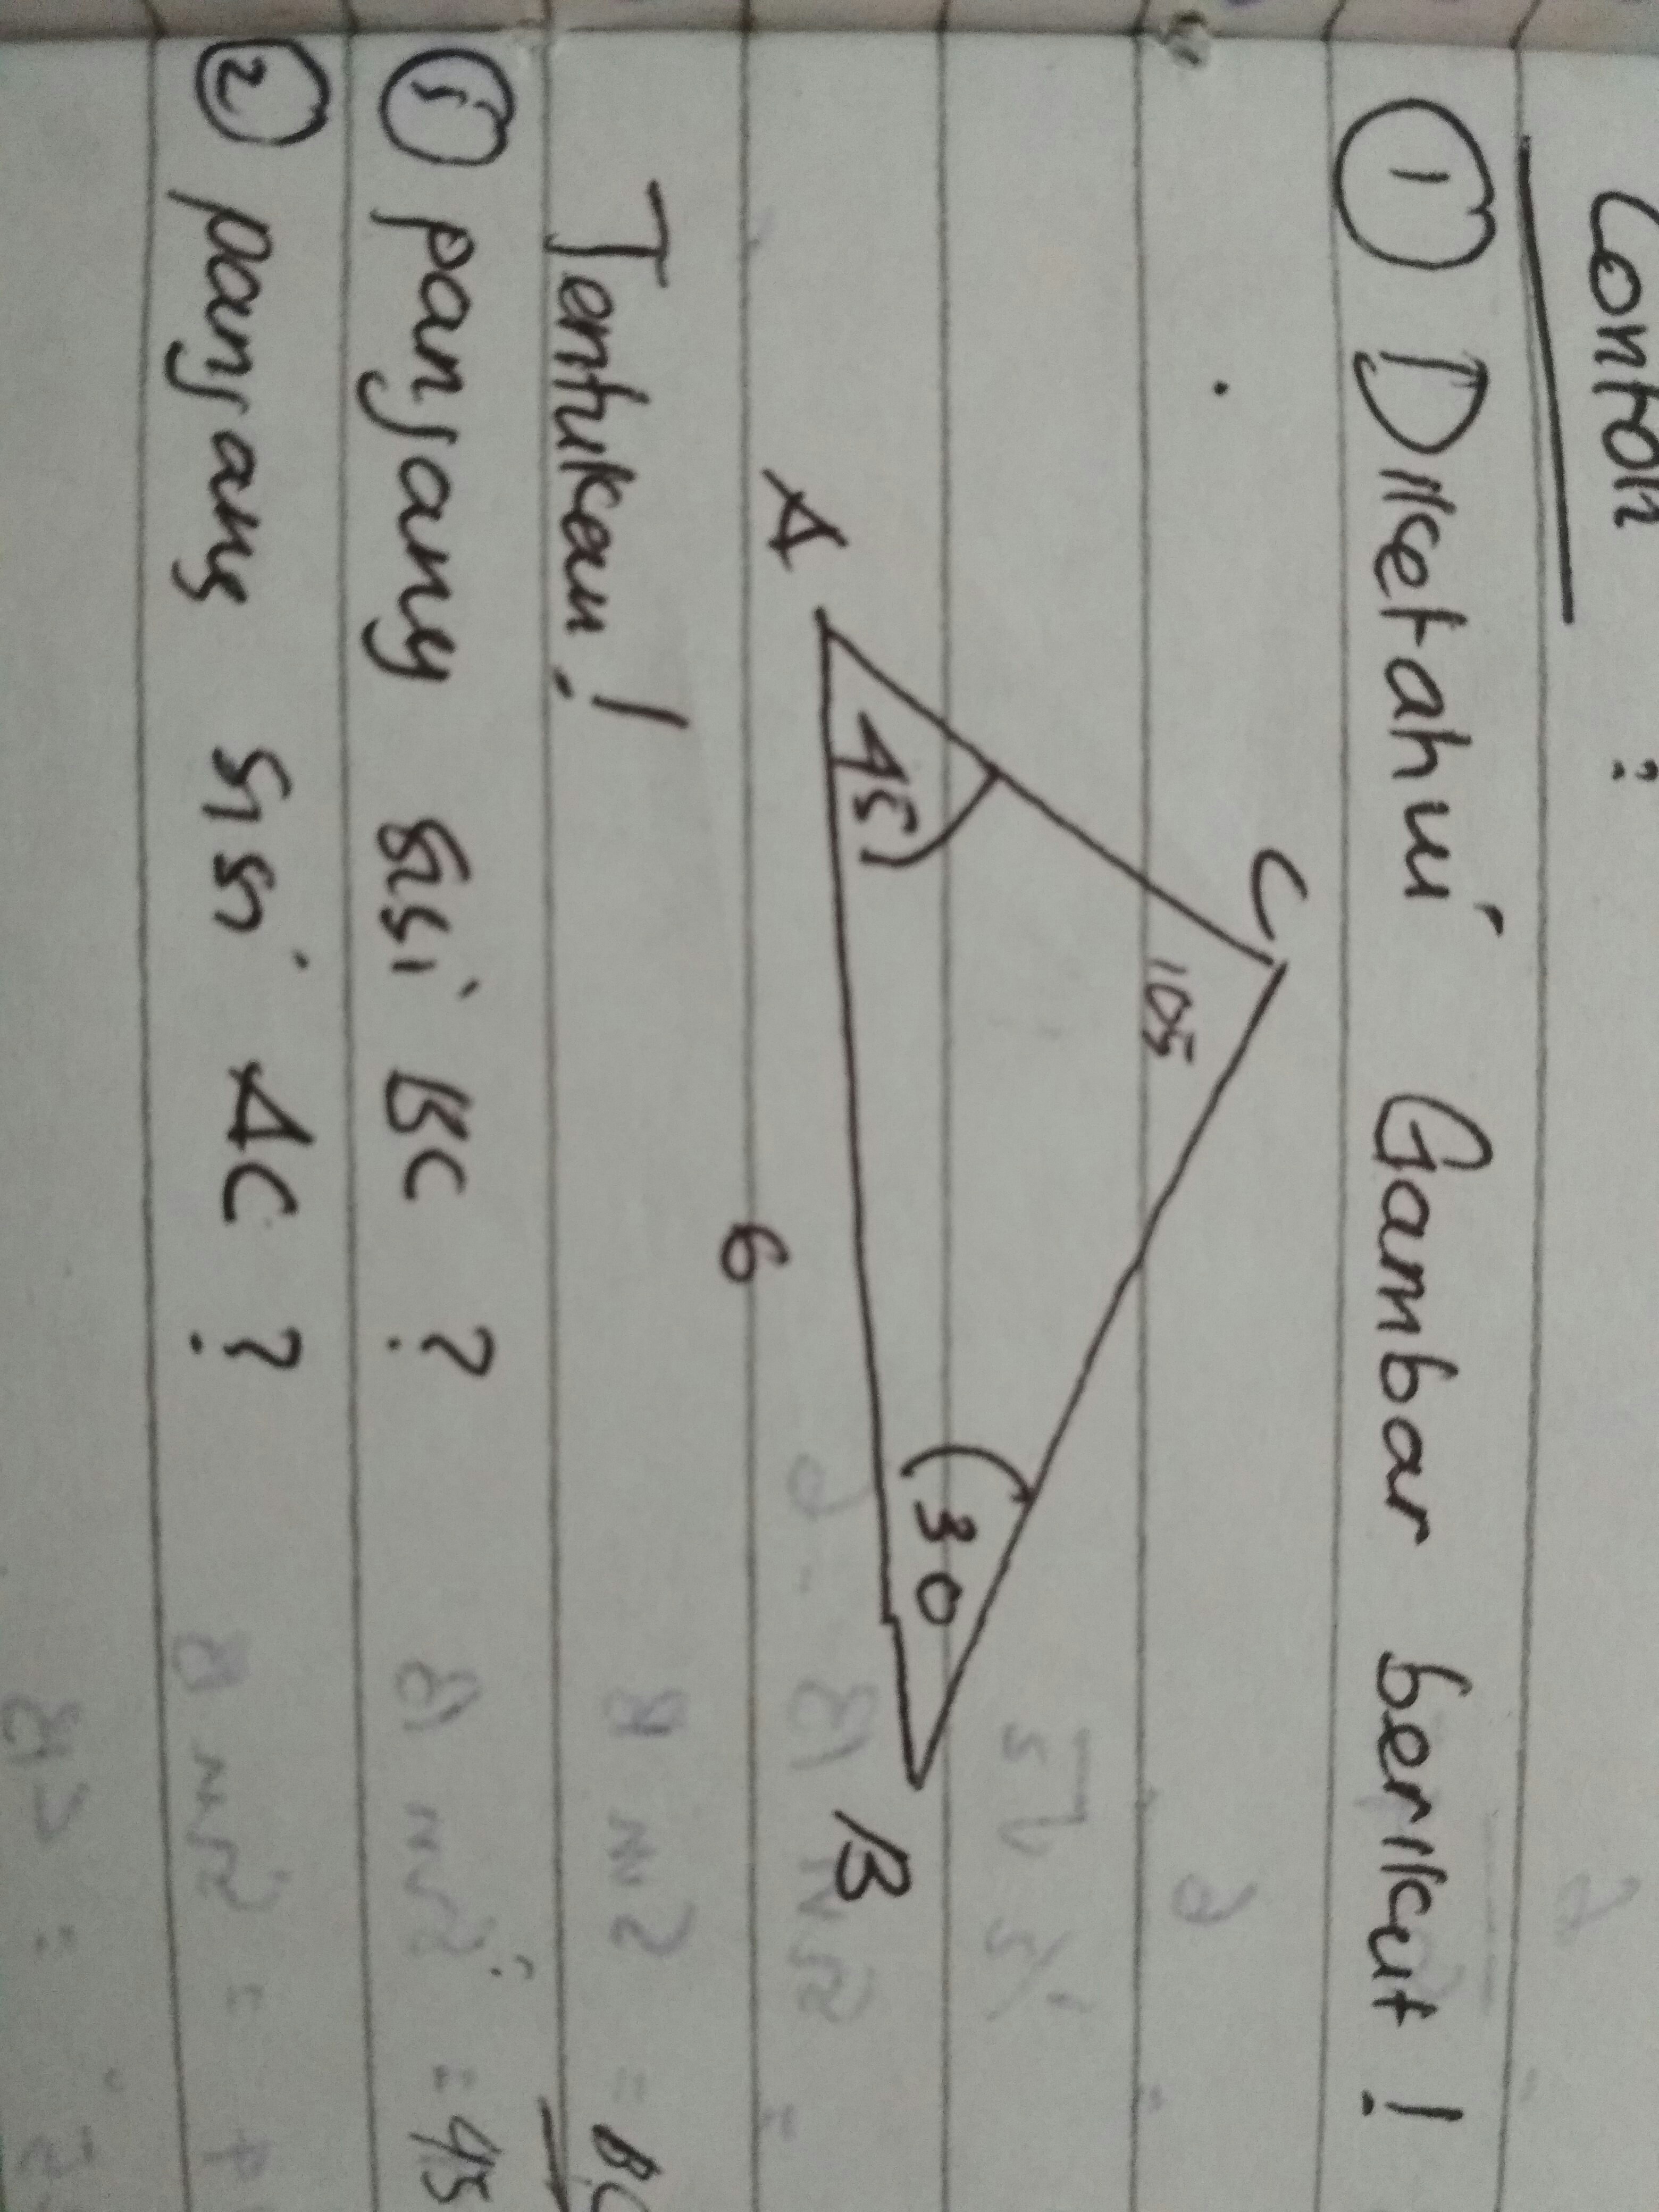 Contoh :
① Diketahui Gambar berikut !
C
105
A
45
30
B
6
Tentukan !
① panjang sisi BC ?
② panjang sisi AC ?